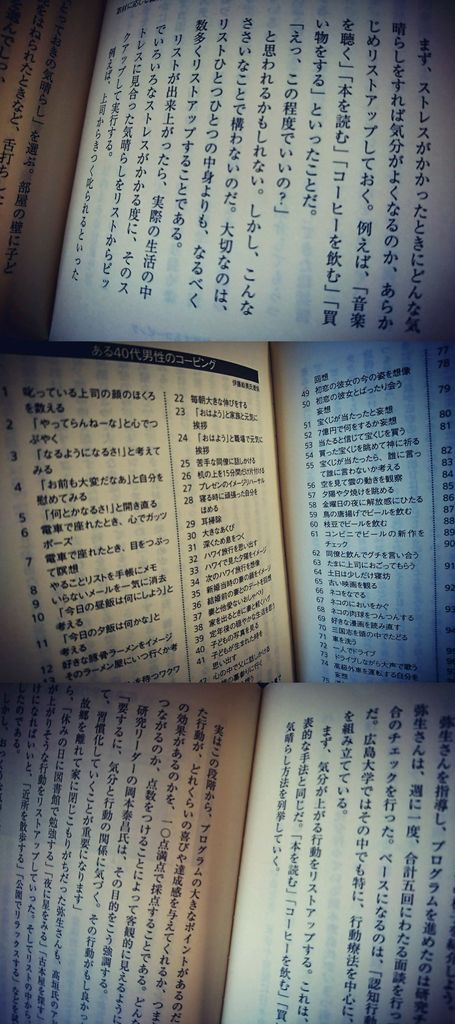 まず、ストレスがかかったときにどんな気
晴らしをすれば気分がよくなるのか、あらか
じめリストアップしておく。例えば、「音楽
を聴く」「本を読む」「コーヒーを飲む」「買
い物をする」といったことだ。
「えっ、この程度でいいの?」
と思われるかもしれない。しかし、こんな
ささいなことで構わないのだ。大切なのは、
リストひとつひとつの中身よりも、なるべく
数多くリストアップすることである。
リストが出来上がったら、実際の生活の中
でいろいろなストレスがかかる度に、そのス
トレスに見合った気晴らしをリストからピッ
クアップして実行する。
例えば、上司からきつく叱られるといった
とっておきの気晴らし」を選ぶ。部屋の壁に子ど
をはねられたときなど、舌打ちした
ある40代男性のコーピング
伊藤絵美氏提供
1 叱っている上司の顔のほくろ
を数える
2 「やってらんねーな」と心でつ
ぶやく
3 「なるようになるさ!」と考えて
みる
4 「お前も大変だなあ」と自分を
慰めてみる
5 「何とかなるさ!」と開き直る
6 電車で座れたとき、心でガッツ
ポーズ
7 電車で座れたとき、目をつぶっ
て瞑想
8 やることリストを手帳にメモ
9 いらないメールを一気に消去
10 「今日の昼飯は何にしよう」と
考える
11 「今日の夕飯は何かな」と
考える
12 好きな豚骨ラーメンをイメージ
そのラーメン屋にいつ行くか考
22 毎朝大きな伸びをする
23 「おはよう」と家族と元気に
挨拶
24 「おはよう」と職場で元気に
挨拶
25 苦手な同僚に話しかける
26 机の上を15分間だけ片付ける
27 プレゼンのイメージリハーサル
28 寝る時に頑張った自分を
ほめる
29 耳掃除
30 大きなあくび
31 深くため息をつく
32 ハワイ旅行を思い出す
33 ハワイで見た夕陽をイメージ
34 次のハワイ旅行を想像
35 新婚当時の妻の顔をイメージ
36 結婚前の妻とのデート回想
37 妻と他愛ないおしゃべり
38 家を出るときに妻と軽くハグ
39 定年後の穏やかな生活を思う
40 子どもの写真を見る
41 子どもが生まれた時を
思い出す
回想
49 初恋の彼女の今の姿を想像
50 初恋の彼女とばったり会う
妄想
51 宝くじが当たったと妄想
52 7億円で何をするか妄想
53 当たると信じて宝くじを買う
54 買った宝くじを眺めて神に祈る
55 宝くじが当たったら、誰に言っ
て誰に言わないか考える
56 空を見て雲の動きを観察
57 夕陽や夕焼けを眺める
58 金曜日の夜に解放感にひたる
59 鳥の唐揚げでビールを飲む
60 枝豆でビールを飲む
61 コンビニでビールの新作を
チェック
62 同僚と飲んでグチを言い合う
63 たまに上司におごってもらう
64 土日は少しだけ寝坊
65 古い映画を観る
66 ネコをなでる
67 ネコのにおいをかぐ
68 ネコの肉球をつんつんする
69 好きな漫画を読み直す
70 三国志を頭の中でたどる
71 車を洗う
72 一人でドライブ
73 ドライブしながら大声で歌う
74 高級外車を運転する自分を
妄想
77
78
79
80
弥生さんを指導し、プログラムを進めたのは研究
弥生さんは、週に一度、合計五回にわたる面談を行っ
合のチェックを行った。ベースになるのは、「認知行
だ。広島大学ではその中でも特に、行動療法を中心に、
を組み立てている。
まず、気分が上がる行動をリストアップする。これは、
表的な手法と同じだ。「本を読む」「コーヒーを飲む」「買
気晴らし方法を列挙していく。
実はこの段階から、プログラムの大きなポイントがあるのだ
た行動が、どれくらいの喜びや達成感を与えてくれるか、つま
の効果があるのかを、一〇点満点で採点することである。どん
つながるのか、点数をつけることによって客観的に見えるように
研究リーダーの岡本泰昌氏は、その目的をこう強調する。
「要するに、気分と行動の関係に気づく。その行動がもし良かっ
て、習慣化していくことが重要になります」
故郷を離れて家に閉じこもりがちだった弥生さんも、高垣氏のア
ら、「休みの日に図書館で勉強する」「夜に星をみる」「古本屋を探す」
が上がりそうな行動をリストアップしていった。そしてリストの中から、
けになればいいと、「近所を散歩する」「公園でリラックスする」などを
したのである。